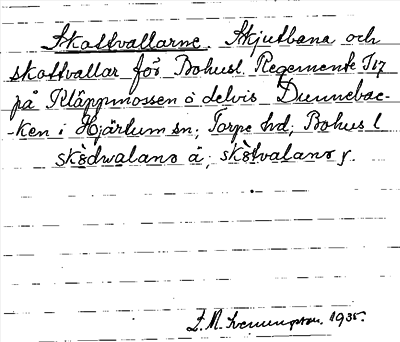 Skottvallarne. Skjutbana och
skottvallar för Bohusl. Regemente I17
på Kläppmossen o delvis Dunnebac-
-ken i Hjärtum sn; Torpe hd; Bohus l
skòdwalanɘ ä; skòtvalanɘ y.
E. M. Svenungsson. 1935.